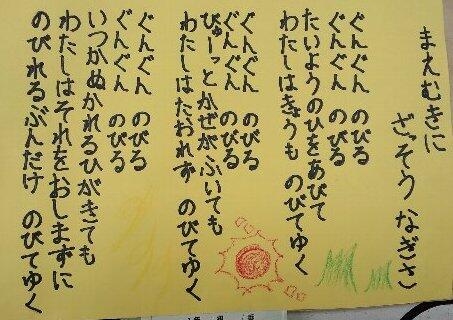 まえむきに
ざっそう なぎさ
ぐんぐん のびる
ぐんぐん のびる
たいようのひをあびて
わたしはきょうも のびてゆく
ぐんぐん のびる
ぐんぐん のびる
びゅーっとかぜがふいても
わたしはたおれず のびてゆく
ぐんぐん のびる
ぐんぐん のびる
いつかぬかれるひがきても
わたしはそれをおしまずに
のびれるぶんだけ のびてゆく